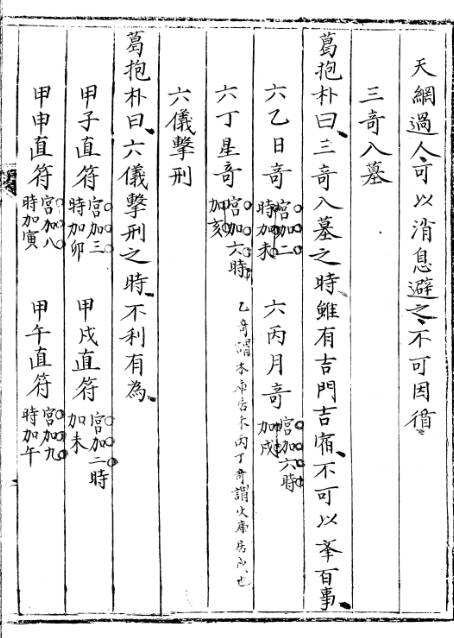 天網過人可以消息避之不可因循
三奇入墓
葛抱朴曰三奇入墓之時雖有吉門吉宿不可以举百事
六乙日奇宮加二時加未 六丙月奇宮加六時加戍
六丁星奇宮加六時加亥 乙奇謂木庫居未丙丁奇謂火庫居戍也
六儀擊刑
葛抱朴曰六儀擊刑之時不利有為
甲子直符宮加三時加卯 甲戍直符宮加二時加未
甲申直符宮加八時加寅 甲午直符宮加九時加午